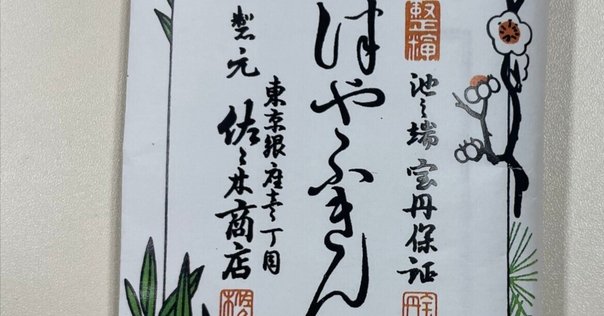 池之端宝丹保証
つやふきん
東京銀座壱丁目
製元 佐々木商店